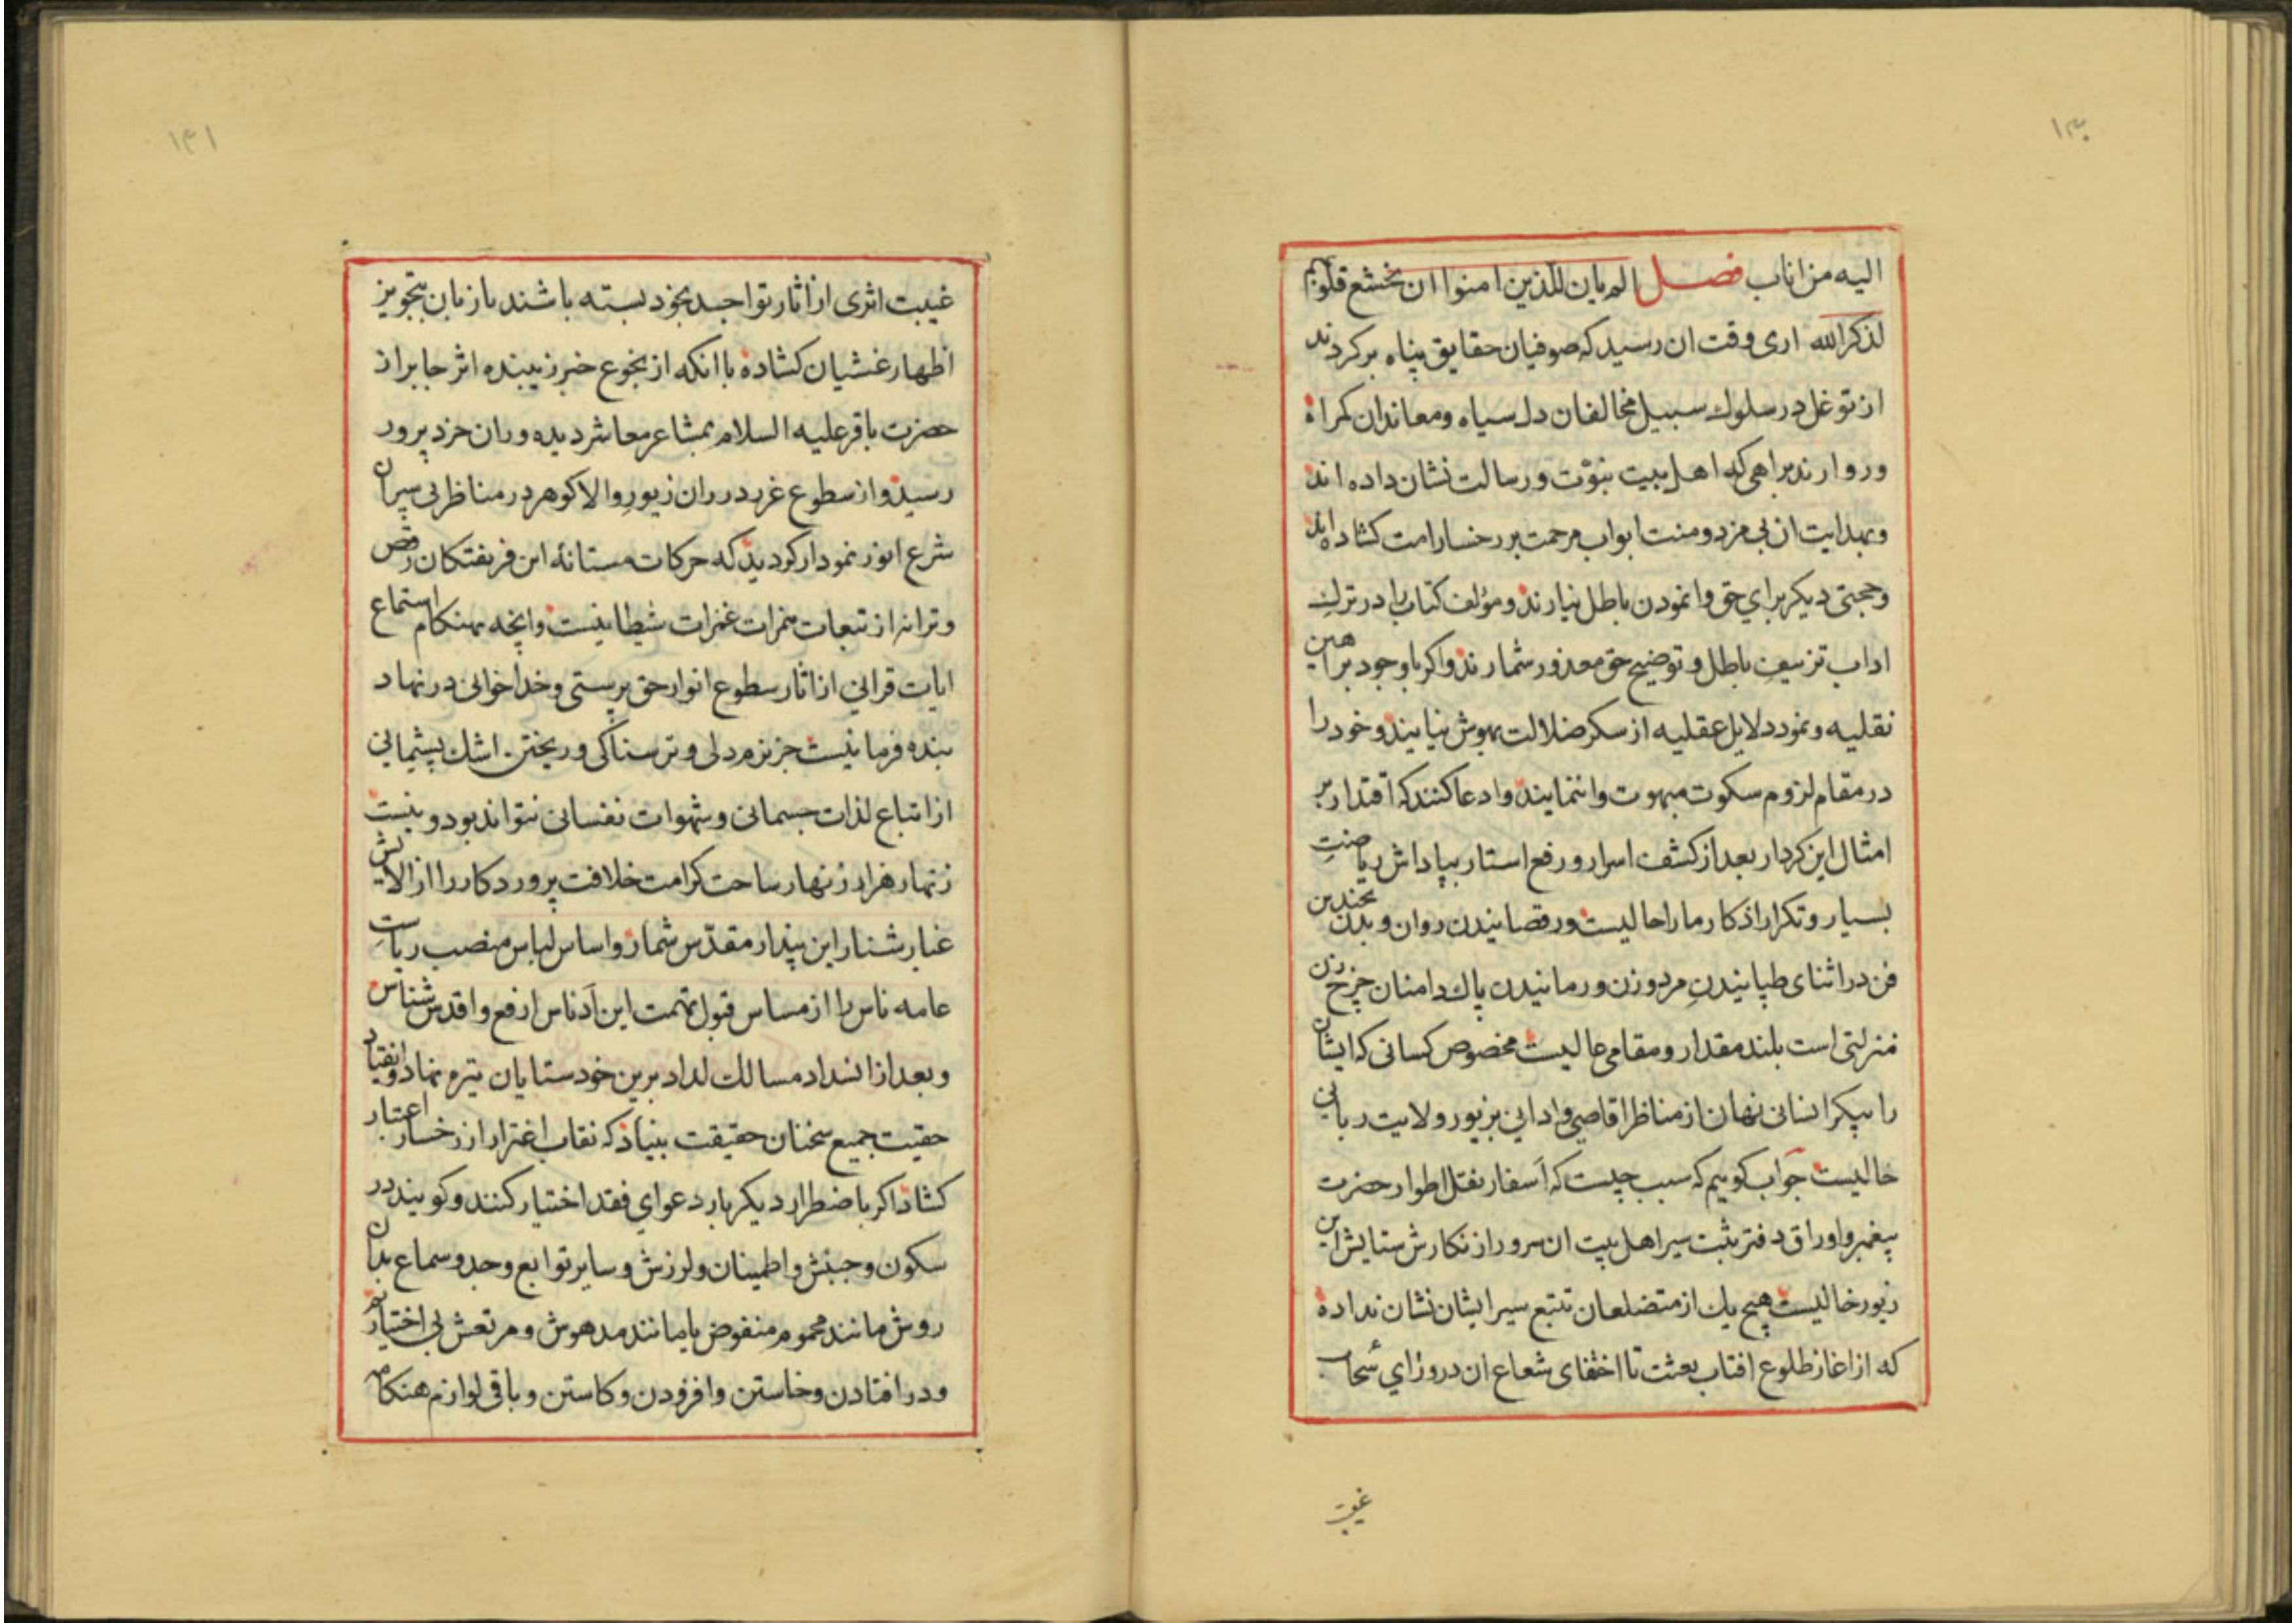 ۱۳۰
الیه من اناب فصل الم یان للذین امنوا ان تخشع قلوبهم
لذکر الله اری وقت ان رسید که صوفیان حقایق پناه برکردند
از توغل در سلوك سبیل مخالفان دل سیاه ومعاندان کمراه
ورو ارند براهی که اهل بیت نبوّت ورسالت نشان داده اند
وبهدایت ان بی مزد ومنت ابواب مرحمت بر رخسار امت کشاده اند
وحجتی دیکر برای حق وانمودن باطل نیارند ومؤلف کتاب را در ترك
اداب تزییف باطل وتوضیح حق معذور شمارند واکر باوجود براهین
نقلیه ونمود دلایل عقلیه از سکر ضلالت بهوش نیایند وخود را
در مقام لزوم سکوت مبهوت وانمایند وادعا کنند که اقتدار بر
امثال این کردار بعد از کشف اسرار ورفع استار بپاداش ریاضت
بسیار وتکرار اذکار ما را حالیست ورقصانیدن روان وبدن بخندین
فن در اثنای طپانیدن مرد وزن ورمانیدن پاك دامنان چرخ زن
منزلتی است بلند مقدار ومقامی عالیست مخصوص کسانی که ایشان
را پیکر انسانی نهان از مناظر اقاصی وادانی بزیور ولایت ربانی
حالیست جواب کوییم که سبب چیست که اَسفار نقل اطوار حضرت
پیغمبر واوراق دفتر ثبت سیر اهل بیت ان سرور از نکارش ستایش این
زیور خالیست هیچ یك از متضلعان تتبع سیر ایشان نشان نداده
که از اغاز طلوع افتاب بعثت تا اختفای شعاع ان در وزای سُحاب
غیبت
۱۳۱
غیبت اثری از اثار تواجد بخود بسته باشند یا زبان بتجویز
اظهار غشیان کشاده با انکه از نجوع خبر زیبنده اثر جابر از
حضرت باقر علیه السلام بمشاعر معاشر دیده وران خرد پرور
رسید واز سطوع غرر درران زیور والا کوهر در مناظر پی سپران
شرع انور نمودار کردید که حرکات مستانهٔ این فریفتکان رقص
وترانه از تبعات همزات غمزات شیطانیست وانچه بهنکام استماع
ایات قرانی از اثار سطوع انوار حق پرستی وخدا خوانی در نهاد
بنده فرمانیست جز نرم دلی وترسناکی وریختن اشك پشیمانی
از اتباع لذات جسمانی وشهوات نفسانی نتواند بود ونیست
زنهار هزار زنهار ساحت کرامت خلافت پروردکار را از الایش
غبار شنار این پندار مقدّس شمار واساس لباس منصب ریاست
عامه ناس را از مساس قبول تهمت این اَدناس ارفع واقدس شناس
وبعد از انسداد مسالك لداد برین خودستایان تیره نهاد وانقیاد
حقیت جمیع سخنان حقیقت بنیاد که نقاب اغترار از رخسار اعتبار
کشاد اکر باضطرار دیکر بار دعوای فقد اختیار کنند وکویند در
سکون وجنبش واطمینان ولرزش وسایر توابع وجد وسماع بدان
روش مانند محموم منفوض یا مانند مدهوش ومرتعش بی اختیاریم
ودر افتادن وخاستن وافزودن وکاستن وباقی لوازم هنکامه